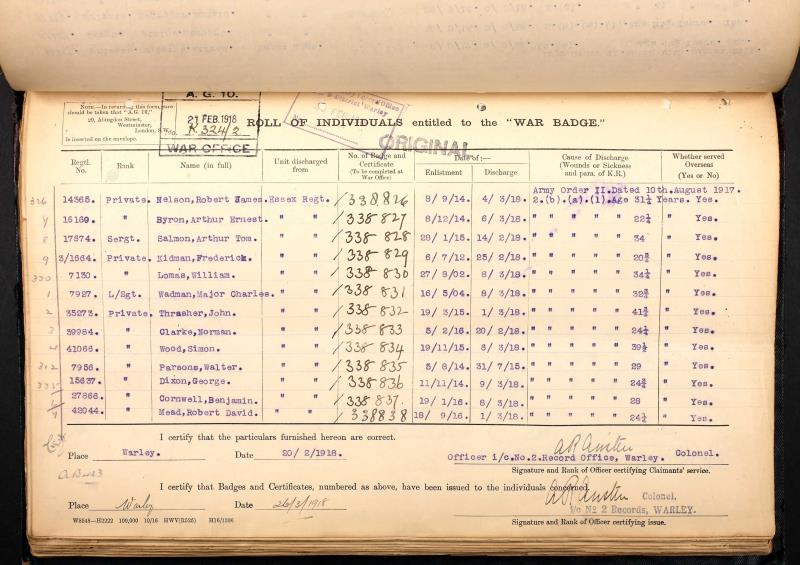 A. G. 10.
NOTE:—In returning this form, care
should be taken that "A.G. 10,"
20, Abingdon Street,
Westminster,
London, S.W.
is inserted on the envelope.
21 FEB. 1918
K 324/2
WAR OFFICE
District Warley
ROLL OF INDIVIDUALS entitled to the "WAR BADGE."
ORIGINAL
Regtl. No. Rank Name (in full) Unit discharged from No. of Badge and Certificate (To be completed at War Office) Date of:— Enlistment Discharge Cause of Discharge (Wounds or Sickness and para. of K.R.) Whether served Overseas (Yes or No)
Army Order II.Dated 10th.August 1917.
326 14365. Private. Nelson,Robert James. Essex Regt. 338826 8/ 9/14. 4/ 3/18. 2.(b).(a).(1).Age 31¼ Years. Yes.
16160. " Byron,Arthur Ernest. " " 338827 8/12/14. 6/ 3/18. " " " " 22¼ " Yes.
17674. Sergt. Salmon,Arthur Tom. " " 338828 28/ 1/15. 14/ 2/18. " " " " 34 " Yes.
9 3/1664. Private. Kidman,Frederick. " " 338829 6/ 7/12. 25/ 2/18. " " " " 20¾ " Yes.
330 7130. " Lomas,William. " " 338830 27/ 8/02. 8/ 3/18. " " " " 34¼ " Yes.
1 7927. L/Sgt. Wadman,Major Charles. " " 338831 16/ 5/04. 8/ 3/18. " " " " 32¾ " Yes.
2 35273. Private. Thrasher,John. " " 338832 19/ 3/15. 1/ 3/18. " " " " 41¾ " Yes.
3 39984. " Clarke,Norman. " " 338833 5/ 2/16. 20/ 2/18. " " " " 24¼ " Yes.
41066. " Wood,Simon. " " 338834 19/11/15. 6/ 3/18. " " " " 39½ " Yes.
312 7956. " Parsons,Walter. " " 338835 5/ 8/14. 31/ 7/15. " " " " 29 " Yes.
15637. " Dixon,George. " " 338836 11/11/14. 9/ 3/18. " " " " 24¾ " Yes.
27866. " Cornwell,Benjamin. " " 338837. 19/ 1/16. 8/ 3/18. " " " " 28 " Yes.
42044. " Mead,Robert David. " " 338838 18/ 9/16. 1/ 3/18. " " " " 24¼ " Yes.
I certify that the particulars furnished hereon are correct.
Place Warley. Date 20/ 2/1918.
A R Austen
Officer i/c.No.2.Record Office, Warley. Colonel.
Signature and Rank of Officer certifying Claimants' service.
I certify that Badges and Certificates, numbered as above, have been issued to the individuals concerned.
Place Warley Date 26/3/1918
A R Austen Colonel.
i/c No 2 Records, WARLEY.
Signature and Rank of Officer certifying issue.
W8548—H2222 100,000 10/16 HWV(R525) M16/1186